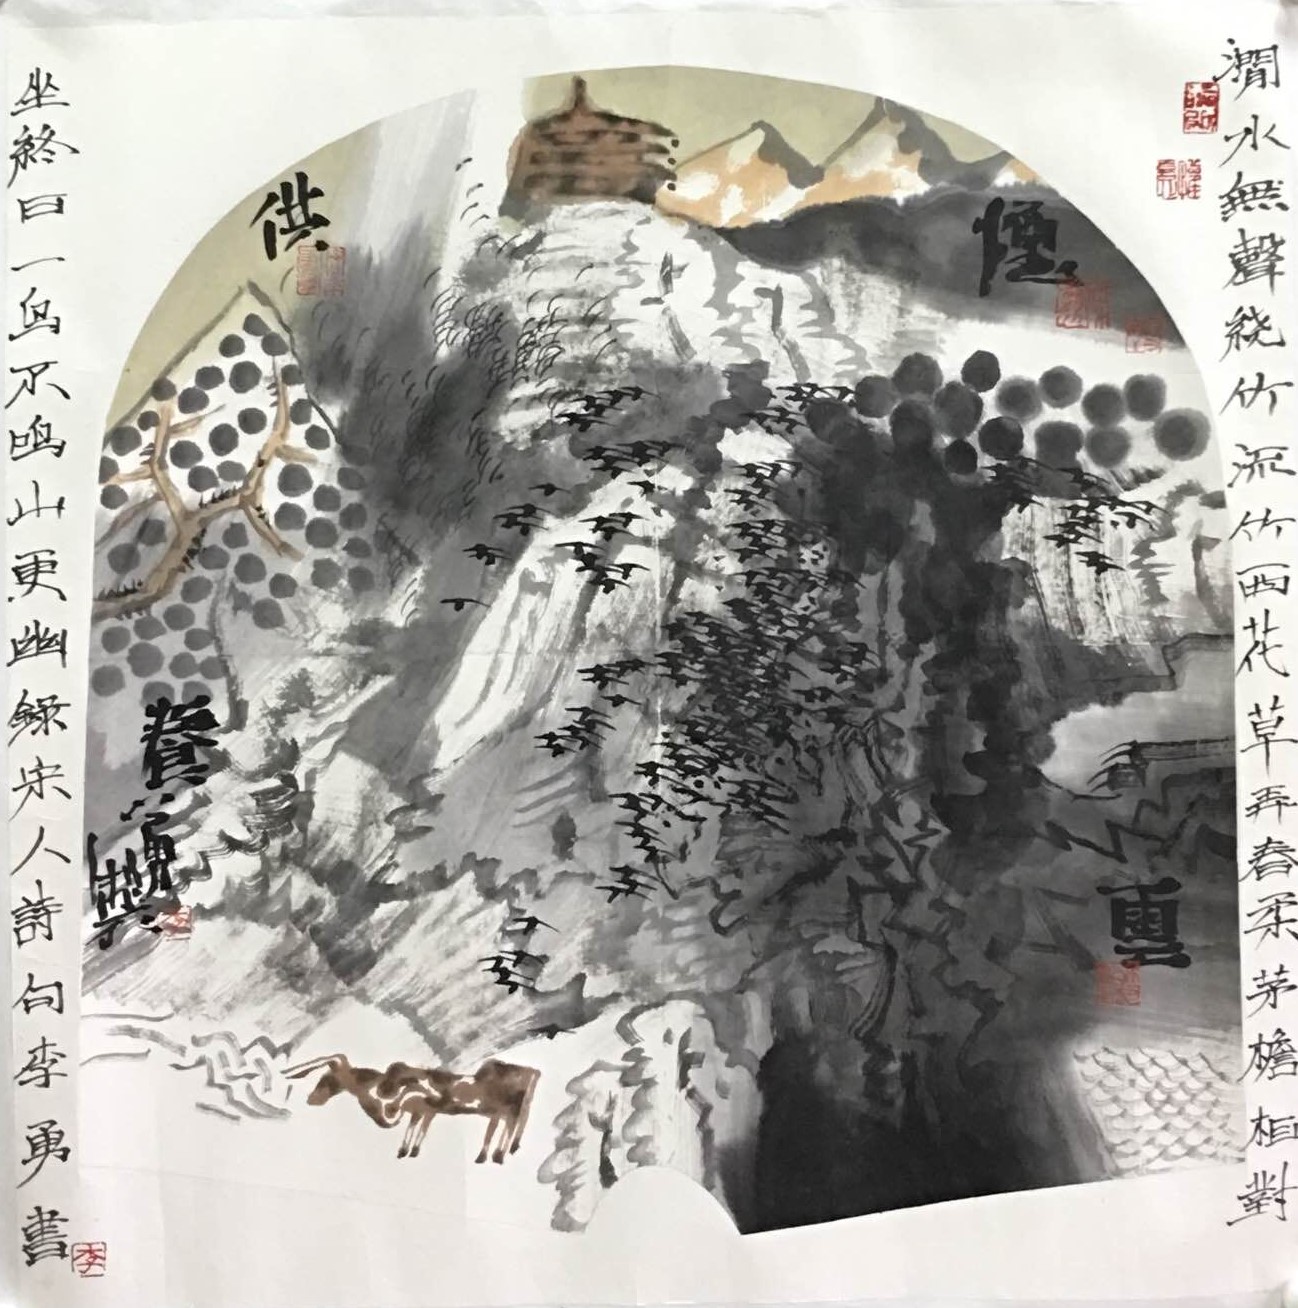 澗水無聲繞竹流竹西花草弄春柔茅檐相對
煙雲
供養
坐終日一鳥不鳴山更幽錄宋人詩句李勇書
李